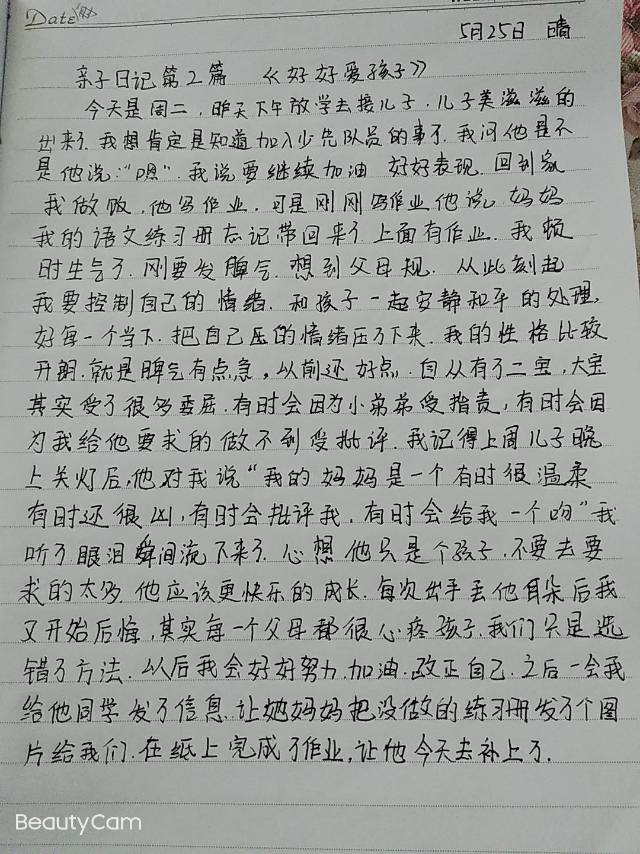 Date
5月25日 晴
亲子日记第2篇 《好好爱孩子》
今天是周二,昨天下午放学去接儿子.儿子美滋滋的
出来了.我想肯定是知道加入少先队员的事了.我问他是不
是他说:"嗯".我说要继续加油 好好表现.回到家
我做饭,他写作业.可是刚刚写作业他说,妈妈
我的语文练习册忘记带回来了上面有作业.我顿
时生气了.刚要发脾气.想到父母规.从此刻起
我要控制自己的情绪.和孩子一起安静和平的处理,
好每一个当下.把自己压的情绪压了下来.我的性格比较
开朗.就是脾气有点急,以前还好点.自从有了二宝,大宝
其实受了很多委屈.有时会因为小弟弟受指责,有时会因
为我给他要求的做不到受批评.我记得上周儿子晚
上关灯后,他对我说"我的妈妈是一个有时很温柔
有时还很凶,有时会批评我,有时会给我一个吻"我
听了眼泪瞬间流下来了.心想他只是个孩子,不要去要
求的太多.他应该更快乐的成长.每次出手丢他耳朵后我
又开始后悔,其实每一个父母都很心疼孩子.我们只是选
错了方法.以后我会好好努力.加油.改正自己.之后一会我
给他同学发了信息.让她妈妈把没做的练习册发了个图
片给我们.在纸上完成了作业,让他今天去补上了.
BeautyCam